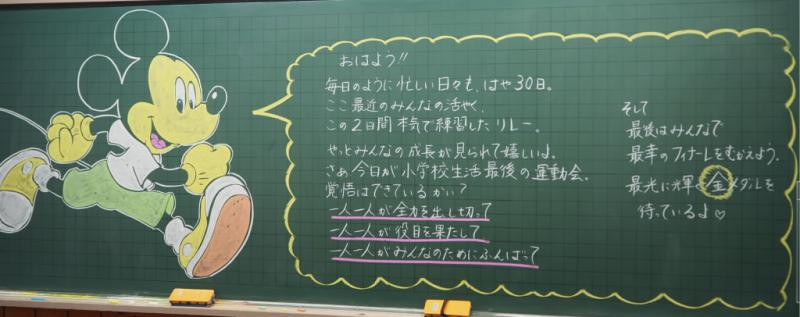 おはよう!!
毎日のように忙しい日々も、はや30日。
ここ最近のみんなの活やく、
この2日間本気で練習したリレー。
やっとみんなの成長が見られて嬉しいよ。
さぁ今日が小学校生活最後の運動会。
覚悟はできているかい?
一人一人が全力を出し切って
一人一人が役目を果たして
一人一人がみんなのためにふんばって
そして
最後はみんなで
最幸のフィナーレをむかえよう。
最光に輝く金メダルを
待っているよ♡